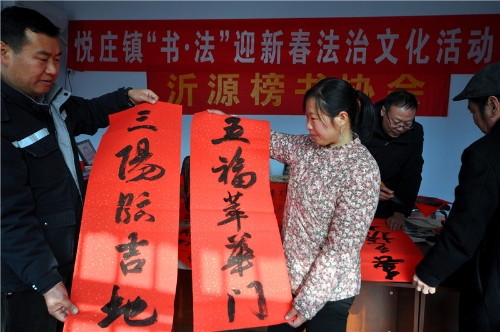 悦庄镇“书·法”迎新春法治文化活动
沂源榜书协会
三陽临吉地
五福萃華门